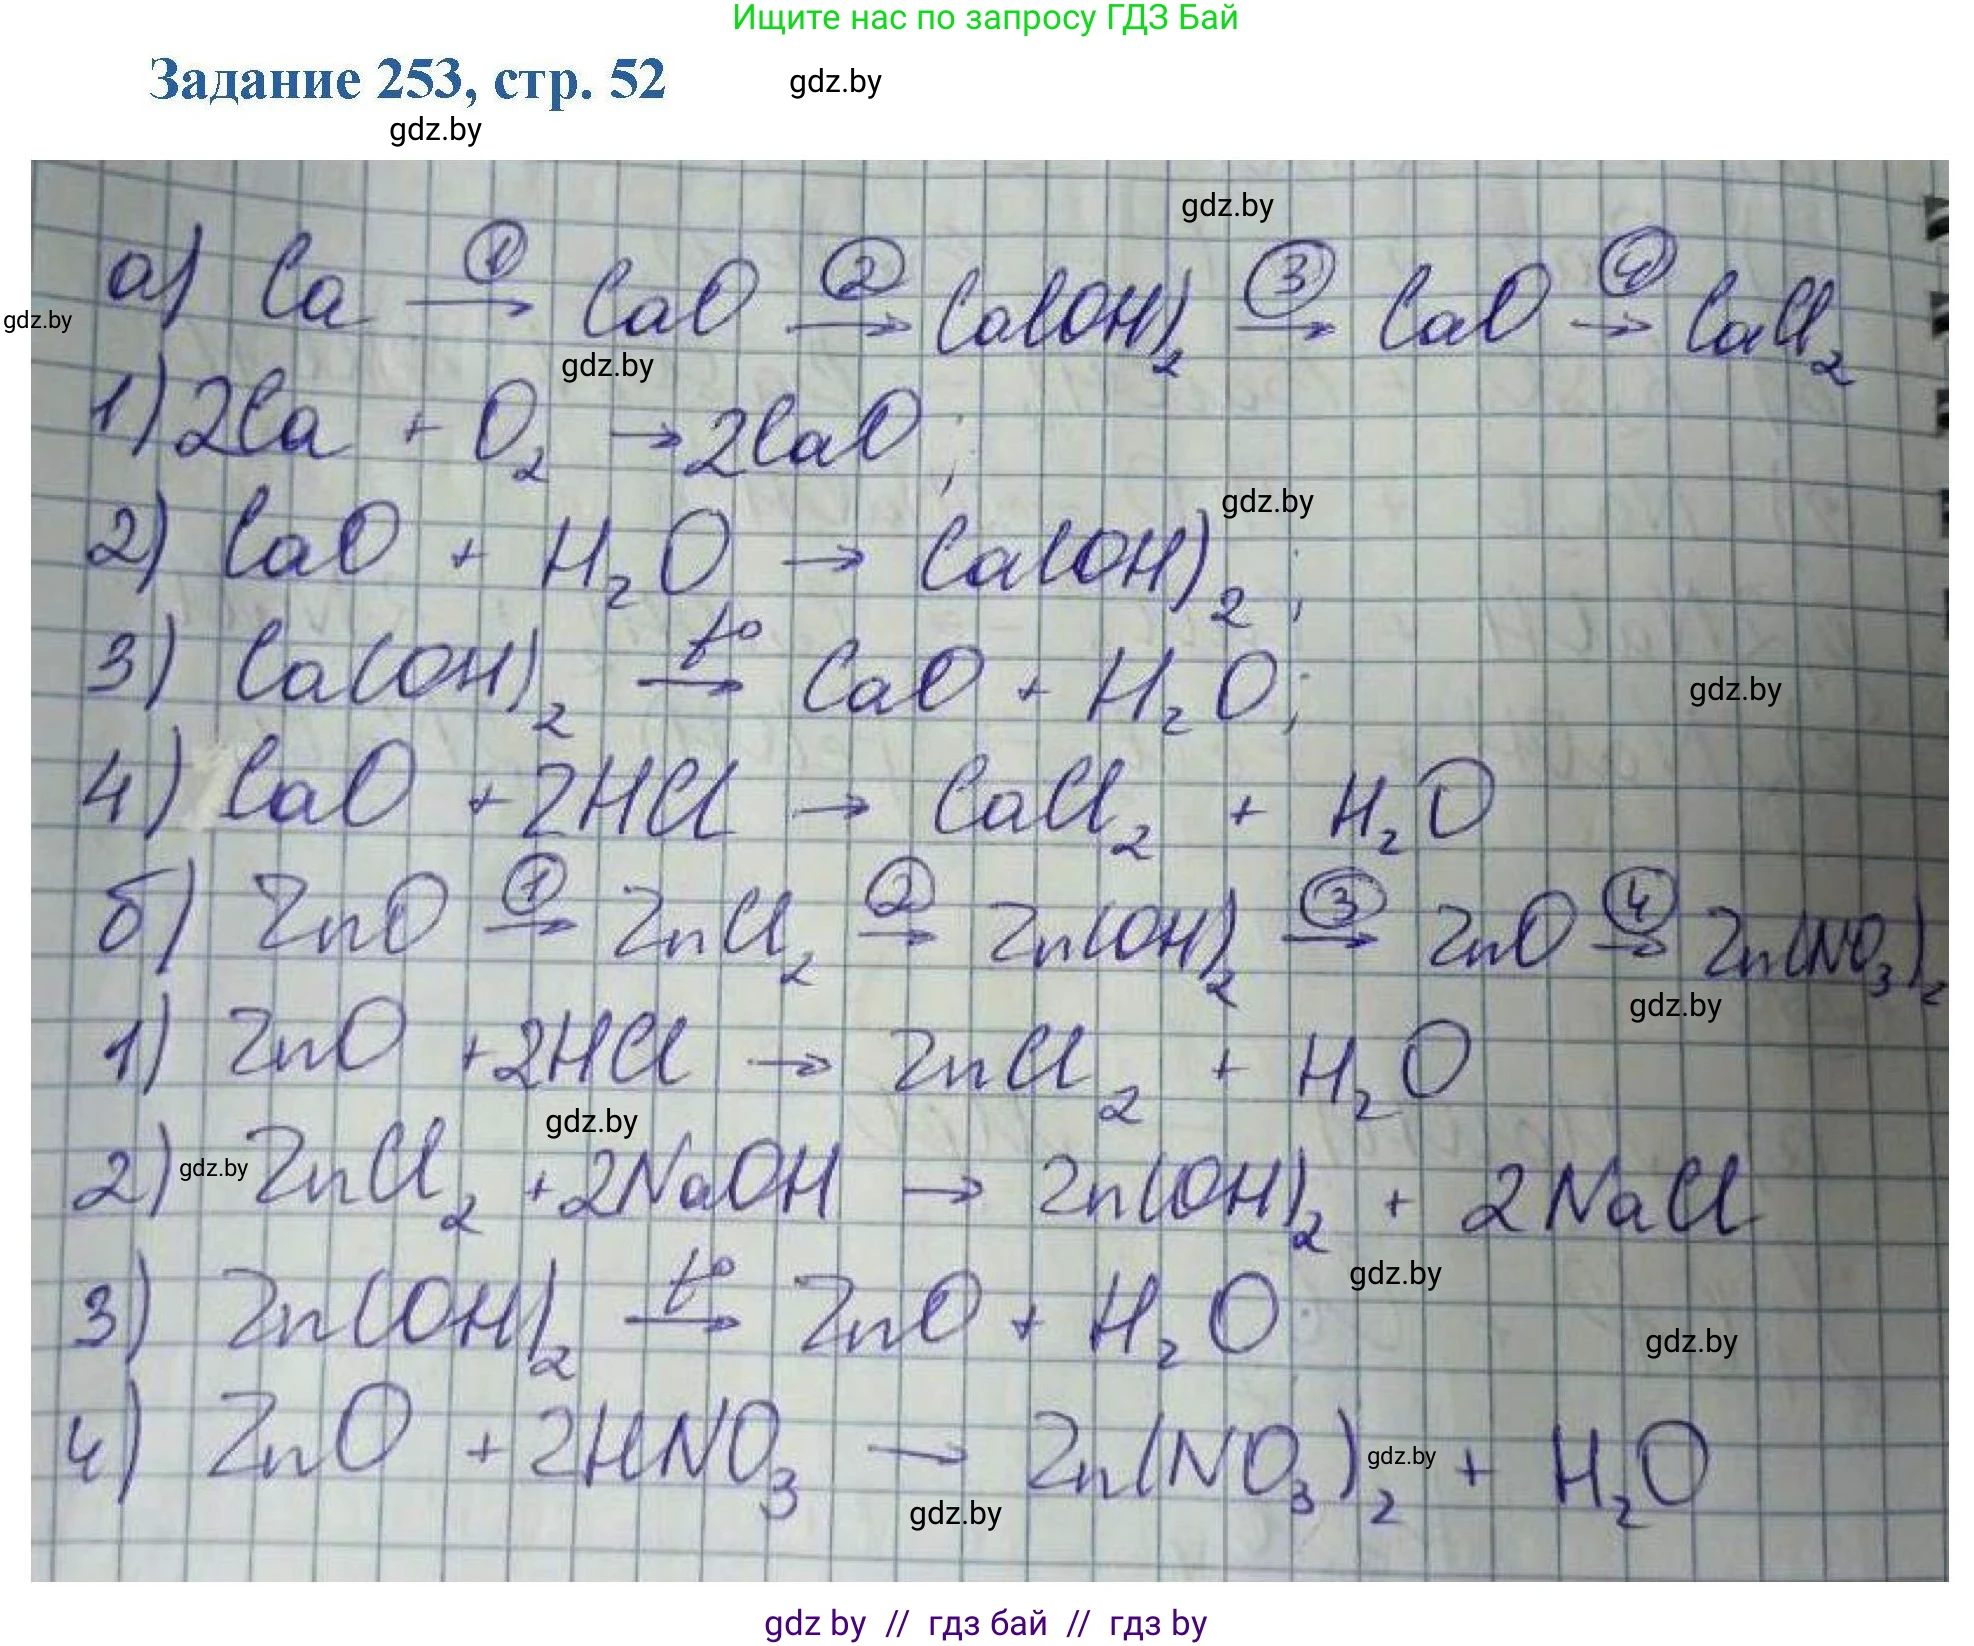 Ищите нас по запросу ГДЗ Бай
Задание 253, стр. 52 gdz.by
gdz.by
gdz.by
а) Ca ①→ CaO ②→ Ca(OH)₂ ③→ CaO ④→ CaCl₂
gdz.by
gdz.by
1) 2Ca + O₂ → 2CaO;
gdz.by
2) CaO + H₂O → Ca(OH)₂;
3) Ca(OH)₂ t°→ CaO + H₂O;
gdz.by
4) CaO + 2HCl → CaCl₂ + H₂O
б) ZnO ①→ ZnCl₂ ②→ Zn(OH)₂ ③→ ZnO ④→ Zn(NO₃)₂
gdz.by
1) ZnO + 2HCl → ZnCl₂ + H₂O
gdz.by
2) gdz.by ZnCl₂ + 2NaOH → Zn(OH)₂ + 2NaCl
gdz.by
3) Zn(OH)₂ t°→ ZnO + H₂O
gdz.by
4) ZnO + 2HNO₃ → Zn(NO₃)₂ gdz.by + H₂O
gdz.by
gdz by // гдз бай // гдз by